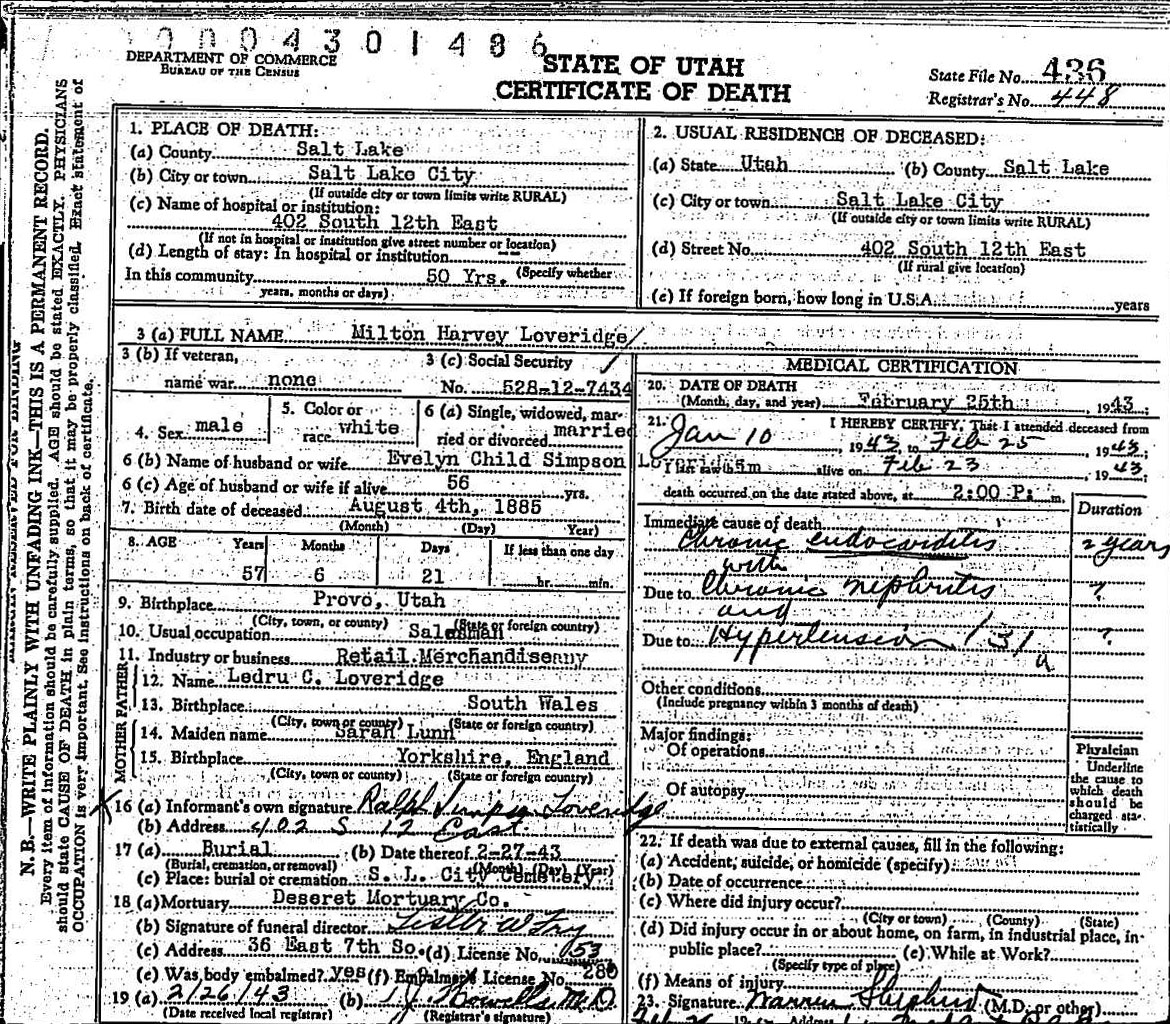 0004301486
DEPARTMENT OF COMMERCE
BUREAU OF THE CENSUS
STATE OF UTAH
CERTIFICATE OF DEATH
State File No. 436
Registrar's No. 448
N. B.—WRITE PLAINLY WITH UNFADING INK—THIS IS A PERMANENT RECORD.
Every item of information should be carefully supplied. AGE should be stated EXACTLY. PHYSICIANS
should state CAUSE OF DEATH in plain terms, so that it may be properly classified. Exact statement of
OCCUPATION is very important. See instructions on back of certificate.
1. PLACE OF DEATH:
(a) County Salt Lake
(b) City or town Salt Lake City
(If outside city or town limits write RURAL)
(c) Name of hospital or institution:
402 South 12th East
(If not in hospital or institution give street number or location)
(d) Length of stay: In hospital or institution --
In this community 50 Yrs. (Specify whether
years, months or days)
2. USUAL RESIDENCE OF DECEASED:
(a) State Utah (b) County Salt Lake
(c) City or town Salt Lake City
(If outside city or town limits write RURAL)
(d) Street No. 402 South 12th East
(If rural give location)
(e) If foreign born, how long in U.S.A. years
3 (a) FULL NAME Milton Harvey Loveridge
3 (b) If veteran,
name war none
3 (c) Social Security
No. 528-12-7434
4. Sex male
5. Color or
race white
6 (a) Single, widowed, mar-
ried or divorced married
6 (b) Name of husband or wife Evelyn Child Simpson Loveridge
6 (c) Age of husband or wife if alive 56 yrs.
7. Birth date of deceased August 4th, 1885
(Month) (Day) Year)
8. AGE Years Months Days If less than one day
57 6 21 hr. min.
9. Birthplace Provo, Utah
(City, town, or county) (State or foreign country)
10. Usual occupation Salesman
11. Industry or business Retail Merchandise
FATHER
12. Name Ledru C. Loveridge
13. Birthplace South Wales
(City, town or county) (State or foreign country)
MOTHER
14. Maiden name Sarah Lunn
15. Birthplace Yorkshire, England
(City, town or county) (State or foreign country)
X 16 (a) Informant's own signature Ralph Simpson Loveridge
(b) Address 402 S 12 East
17 (a) Burial (b) Date thereof 2-27-43
(Burial, cremation, or removal) (Month) (Day) (Year)
(c) Place: burial or cremation S. L. City Cemetery
18 (a) Mortuary Deseret Mortuary Co.
(b) Signature of funeral director
(c) Address 36 East 7th So. (d) License No. 153
(e) Was body embalmed? yes (f) Embalmer's License No. 280
19 (a) 2/26/43 (b) M.D.
(Date received local registrar) (Registrar's signature)
MEDICAL CERTIFICATION
20. DATE OF DEATH
(Month, day, and year) February 25th, 1943
21. I HEREBY CERTIFY, That I attended deceased from
Jan 10, 1943, to Feb 25, 1943;
I last saw him alive on Feb 23, 1943;
death occurred on the date stated above, at 2:00 P. m.
Duration
Immediate cause of death
Chronic endocarditis 2 years
with
Due to Chronic nephritis ?
and
Due to Hypertension 131 a ?
Other conditions
(Include pregnancy within 3 months of death)
Major findings:
Of operations
Of autopsy
Physician
Underline
the cause to
which death
should be
charged sta-
tistically
22. If death was due to external causes, fill in the following:
(a) Accident, suicide, or homicide (specify)
(b) Date of occurrence
(c) Where did injury occur?
(City or town) (County) (State)
(d) Did injury occur in or about home, on farm, in industrial place, in
public place? (e) While at Work?
(Specify type of place)
(f) Means of injury
23. Signature Warren Shepherd (M.D. or other)
Address